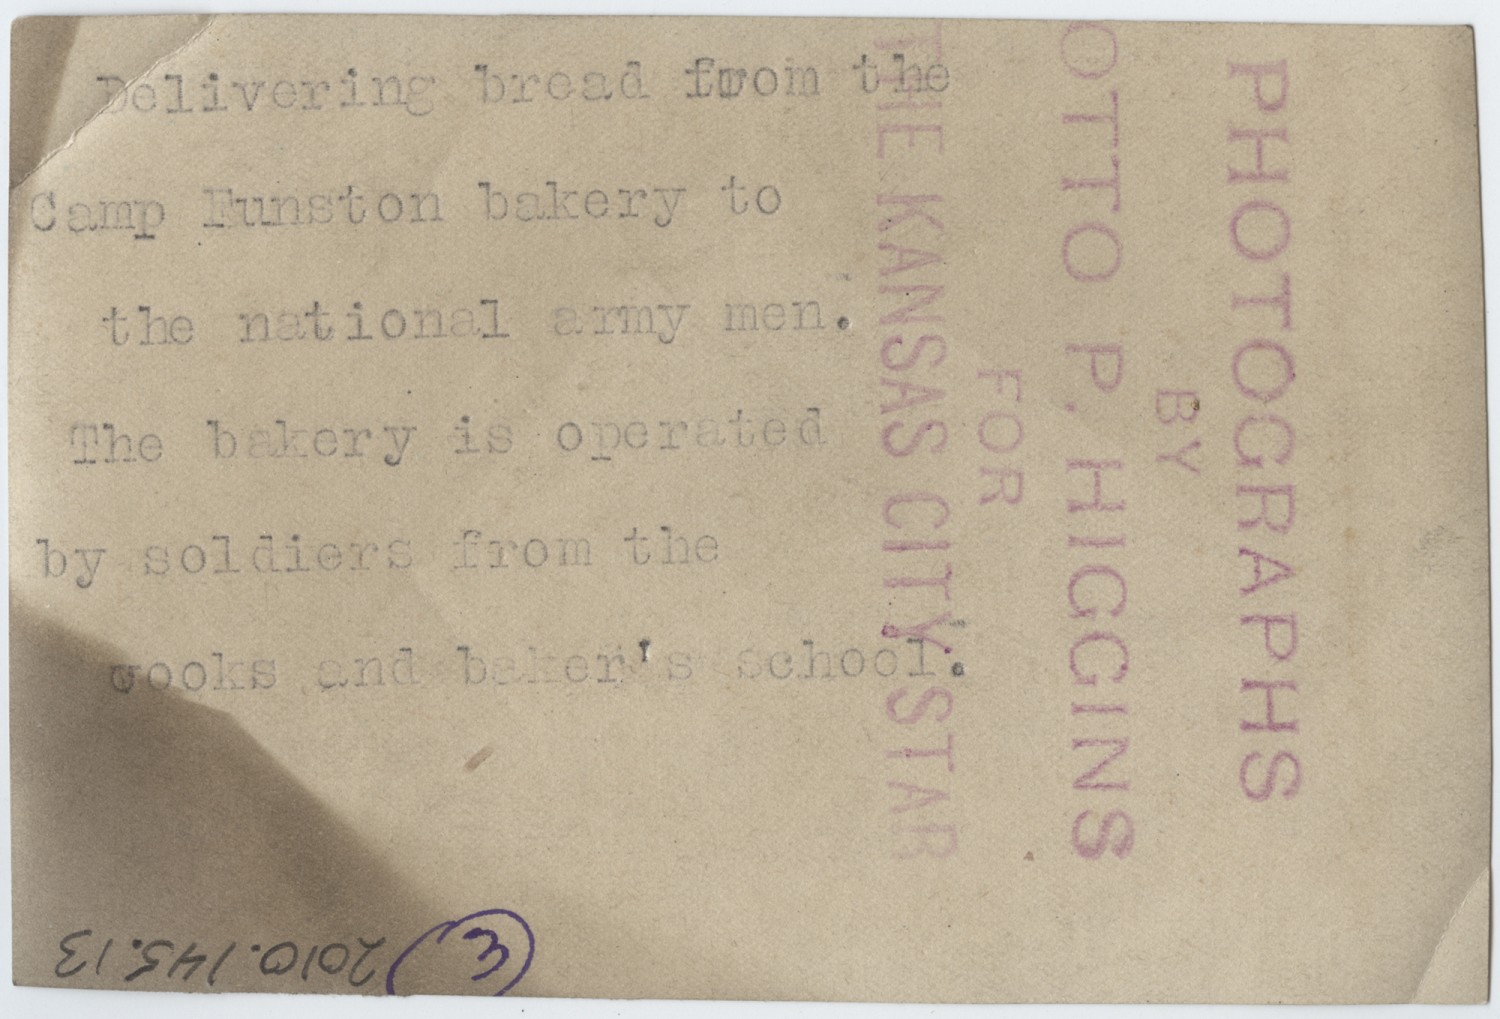 Delivering bread from the
Camp Funston bakery to
the national army men.
The bakery is operated
by soldiers from the
cooks and baker's school.
PHOTOGRAPHS
BY
OTTO P. HIGGINS
FOR
THE KANSAS CITY STAR
2010.145.13